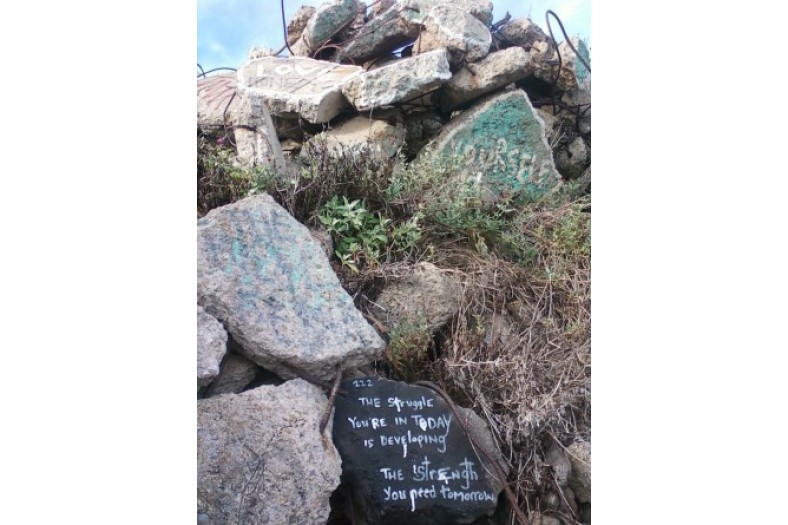 YOURSELF
222
THE Struggle
You'RE IN TODAY
is DEVELOPING
THE StrENGth
You need tomorrow